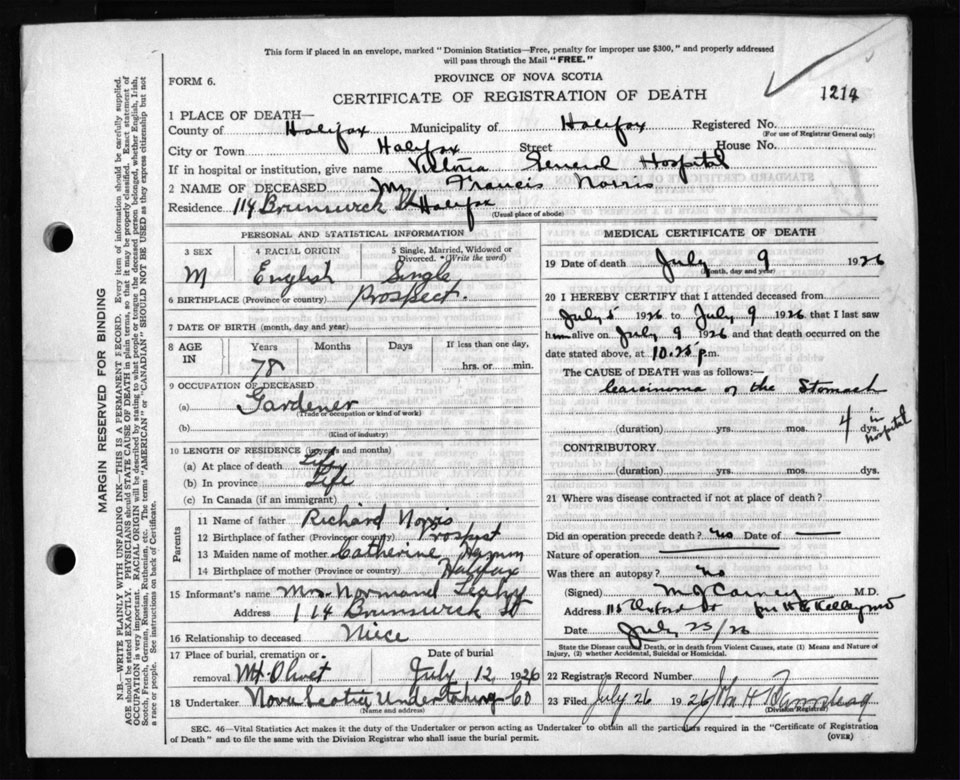 This form if placed in an envelope, marked "Dominion Statistics—Free, penalty for improper use $300," and properly addressed
will pass through the Mail "FREE."
FORM 6.
PROVINCE OF NOVA SCOTIA
CERTIFICATE OF REGISTRATION OF DEATH
1214
1 PLACE OF DEATH—
County of Halifax Municipality of Halifax Registered No.
(For use of Registrar General only)
City or Town Halifax Street House No.
If in hospital or institution, give name Victoria General Hospital
2 NAME OF DECEASED Francis Norris
Residence 114 Brunswick St Halifax
(Usual place of abode)
PERSONAL AND STATISTICAL INFORMATION
3 SEX 4 RACIAL ORIGIN 5 Single, Married, Widowed or
Divorced. (Write the word)
M English Single
6 BIRTHPLACE (Province or country) Prospect.
7 DATE OF BIRTH (month, day and year)
8 AGE IN Years Months Days If less than one day,
78 hrs. or min.
9 OCCUPATION OF DECEASED
(a) Gardener
(Trade or occupation or kind of work)
(b)
(Kind of industry)
10 LENGTH OF RESIDENCE (in years and months)
(a) At place of death Life
(b) In province Life
(c) In Canada (if an immigrant)
Parents
11 Name of father Richard Norris
12 Birthplace of father (Province or country) Prospect
13 Maiden name of mother Catherine
14 Birthplace of mother (Province or country) Halifax
15 Informant's name Mrs. Normand Leahy
Address 114 Brunswick St
16 Relationship to deceased Niece
17 Place of burial, cremation or Date of burial
removal Mt Olivet July 12 1926
18 Undertaker Nova Scotia Undertaking Co
(Name and address)
MEDICAL CERTIFICATE OF DEATH
19 Date of death July 9 1926
(Month, day and year)
20 I HEREBY CERTIFY that I attended deceased from
July 5 1926 to July 9 1926 that I last saw
him alive on July 9 1926 and that death occurred on the
date stated above, at 10.25 p.m.
The CAUSE of DEATH was as follows:—
Carcinoma of the Stomach
(duration) yrs. mos. 4 dys. in hospital
CONTRIBUTORY
(duration) yrs. mos. dys.
21 Where was disease contracted if not at place of death?
Did an operation precede death? no Date of —
Nature of operation
Was there an autopsy? no
(Signed) M J Carney M.D.
Address
Date July 23/26
State the Disease causing Death, or in death from Violent Causes, state (1) Means and Nature of
Injury, (2) whether Accidental, Suicidal or Homicidal.
22 Registrar's Record Number
23 Filed July 26 1926 John H
(Division Registrar)
SEC. 46—Vital Statistics Act makes it the duty of the Undertaker or person acting as Undertaker to obtain all the particulars required in the "Certificate of Registration
of Death" and to file the same with the Division Registrar who shall issue the burial permit.
(OVER)
MARGIN RESERVED FOR BINDING
N.B.—WRITE PLAINLY WITH UNFADING INK—THIS IS A PERMANENT RECORD. Every item of information should be carefully supplied.
AGE should be stated EXACTLY. PHYSICIANS should STATE CAUSE OF DEATH in plain terms, so that it may be properly classified. Exact statement of
OCCUPATION is very important. RACIAL ORIGIN will be described by stating to what people or tongue the deceased person belonged, whether English, Irish,
Scotch, French, German, Russian, Ruthenian, etc. The terms "AMERICAN" or "CANADIAN" SHOULD NOT BE USED as they express citizenship but not
a race or people. See instructions on back of Certificate.